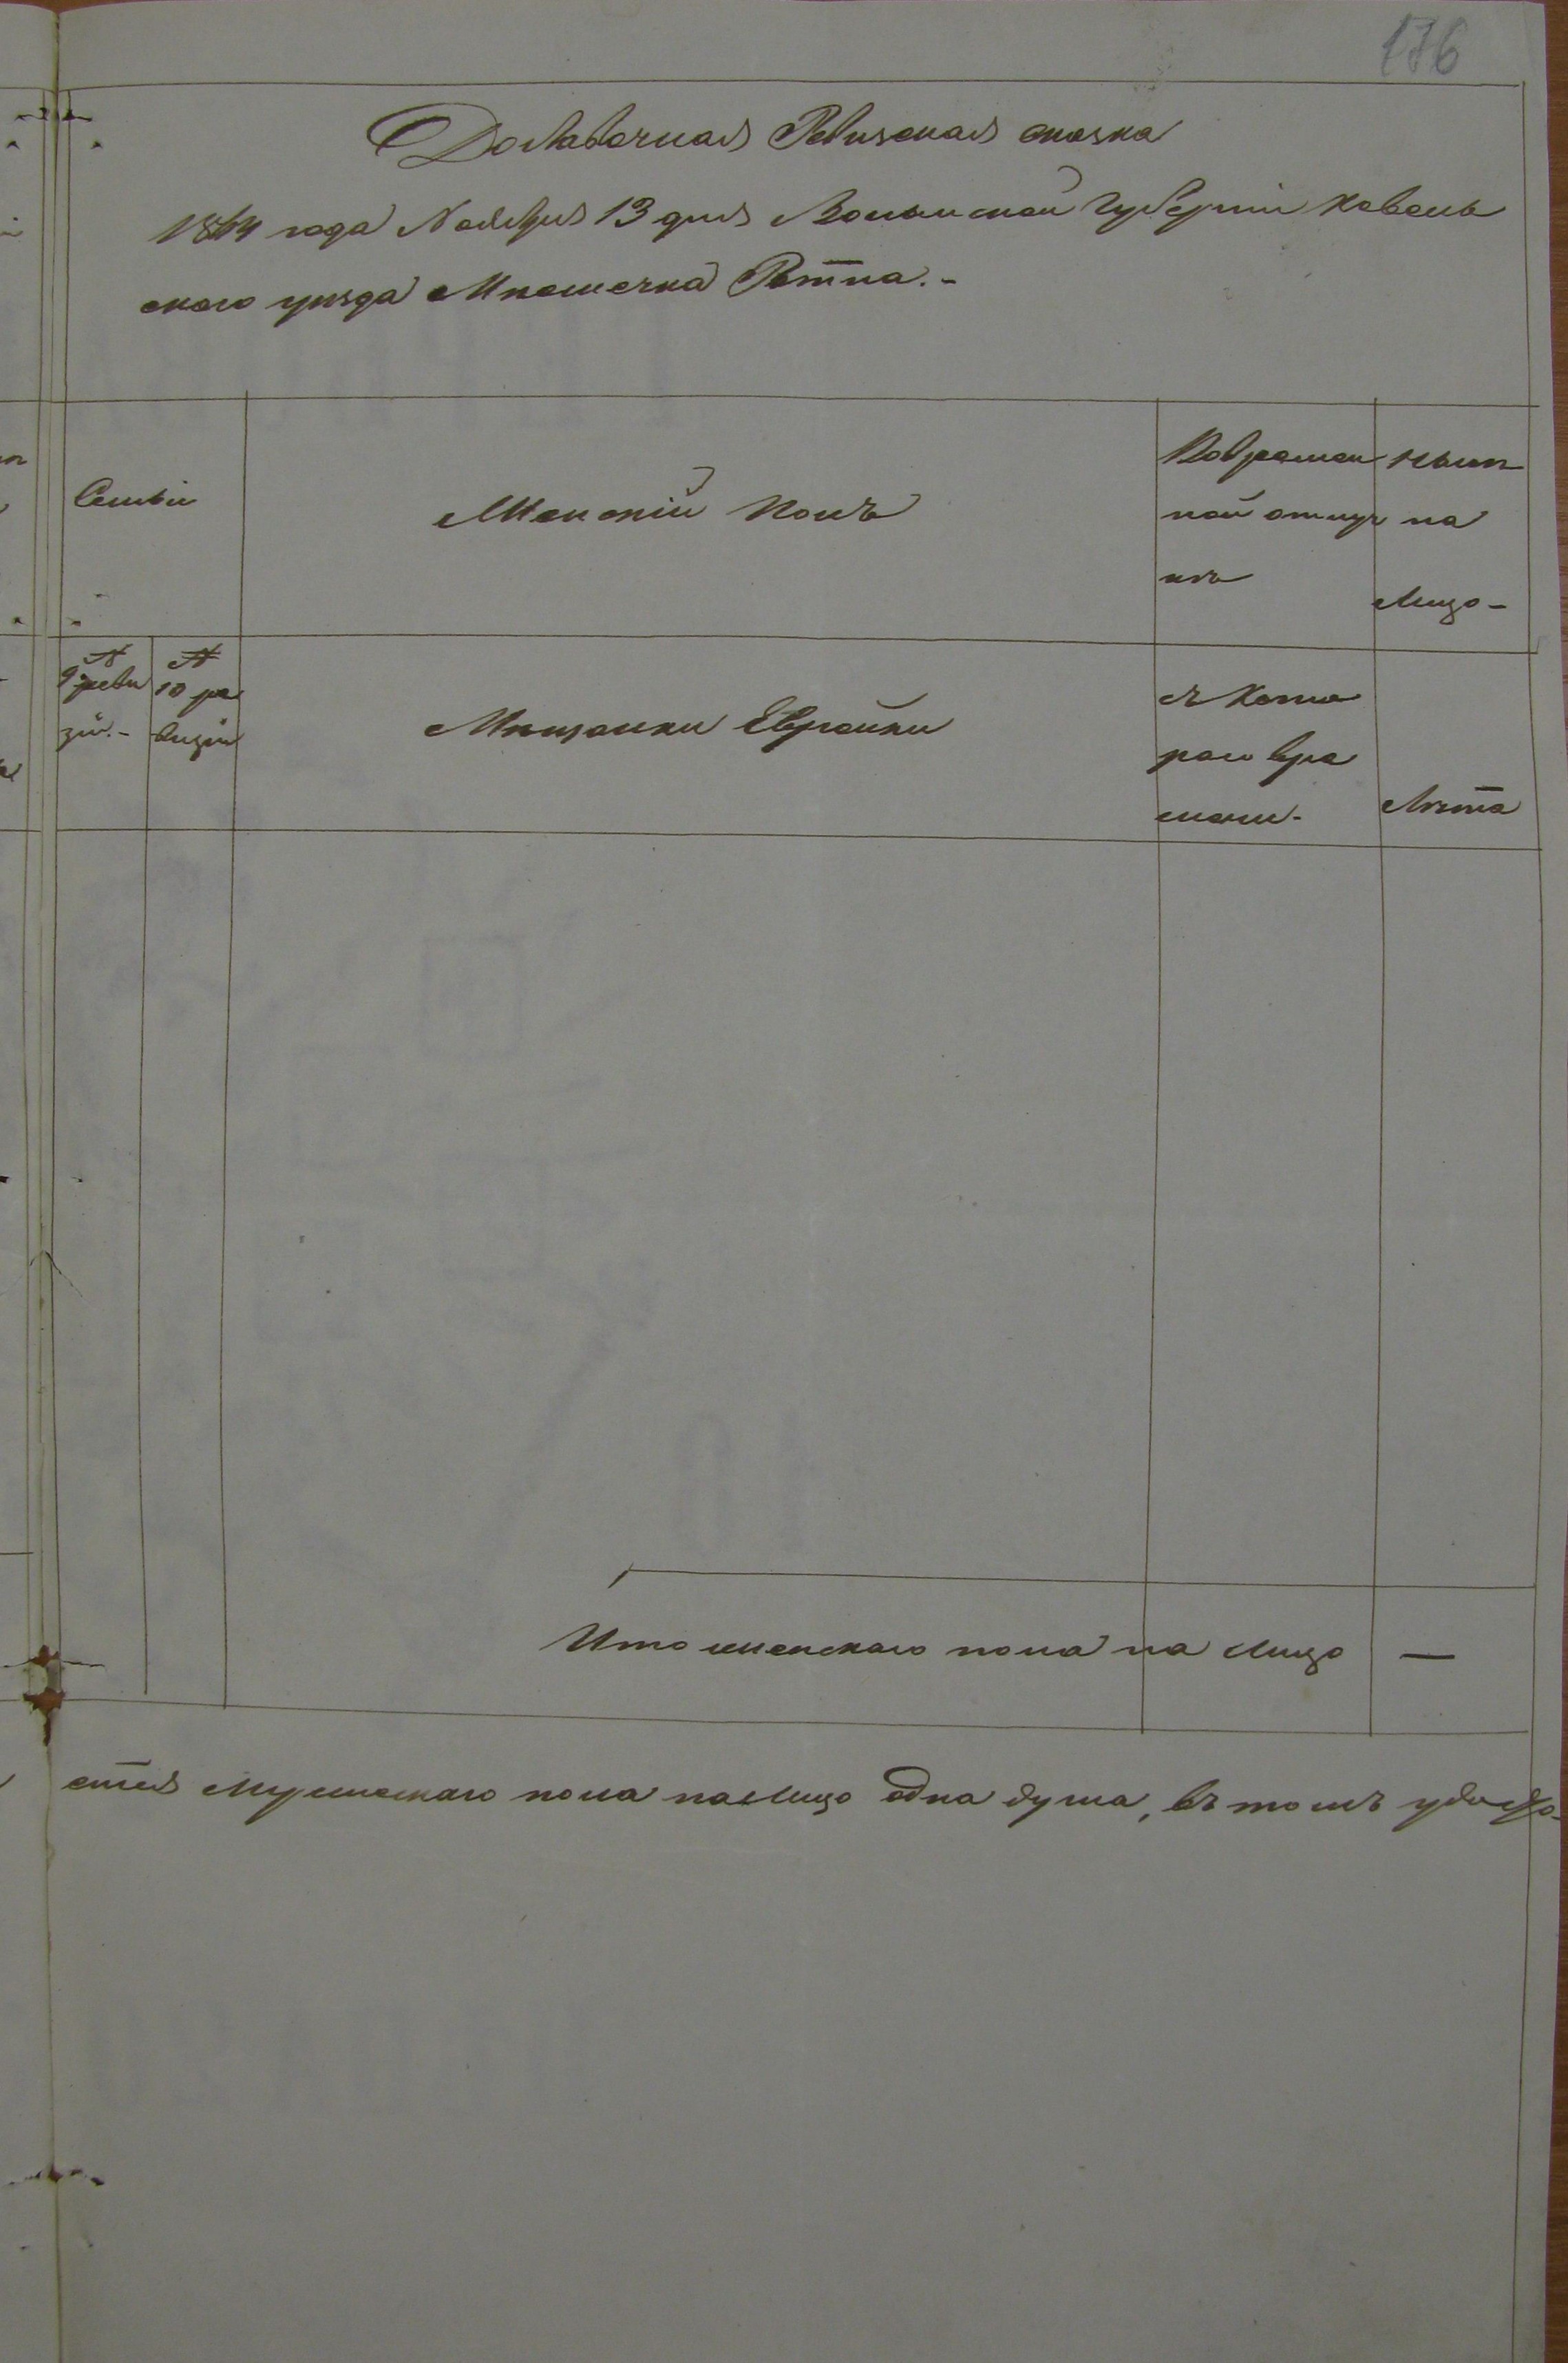 176
Добавочная Ревизская сказка
1864 года Ноября 13 дня Волынской Губерніи Ковель
скаго уѣзда Мѣстечка Ратна.-
Семьи
Женскій полъ
Во времен
ной отлуч
кѣ
нынѣ
на
Лицо-
№
9 реви
зіи.-
№
10 ре
визіи
Мѣщанки Еврейки
съ кото
раго вре
мени-
Лѣта
Итого женскаго пола на Лицо —
ется Мужескаго пола на Лицо одна душа, въ томъ удосто-